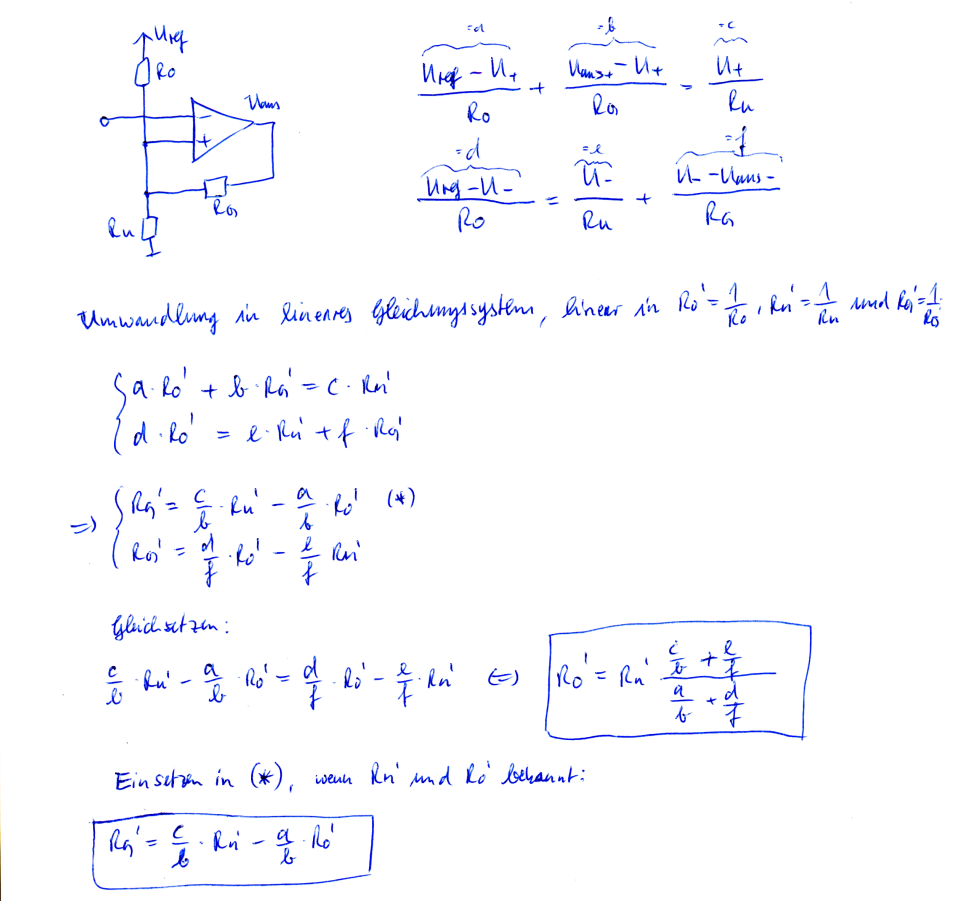 Uref
Ro
Uaus
−
+
RG
Ru
=a =b =c
(Uref − U+)/Ro + (Uaus+ − U+)/RG = U+/Ru
=d =e =f
(Uref − U−)/Ro = U−/Ru + (U− − Uaus−)/RG
Umwandlung in lineares Gleichungssystem, linear in Ro' = 1/Ro, Ru' = 1/Ru und RG' = 1/RG.
{ a · Ro' + b · RG' = c · Ru'
d · Ro' = e · Ru' + f · RG'
=> { RG' = c/b · Ru' − a/b · Ro' (*)
RG' = d/f · Ro' − e/f Ru'
Gleichsetzen:
c/b · Ru' − a/b · Ro' = d/f · Ro' − e/f · Ru' <=> Ro' = Ru' · (c/b + e/f)/(a/b + d/f)
Einsetzen in (*), wenn Ru' und Ro' bekannt:
RG' = c/b · Ru' − a/b · Ro'